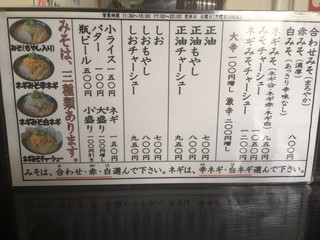 営業時間 11:30～15:00 17:00～20:00 定休日 火曜日
合わせみそ（まろやか）
赤みそ（濃厚）
白みそ（あっさり辛味なし）
八〇〇
ネギみそ
みそチャーシュー
ネギみそチャーシュー
大辛 一〇〇円増し 激辛 二〇〇円増し
正油 七〇〇
正油もやし 八〇〇
正油チャーシュー 九五〇
しお 七〇〇
しおもやし 八〇〇
しおチャーシュー 九五〇
小ライス 一五〇円
バター 一〇〇円
瓶ビール 五〇〇円
ネギ 一五〇
大盛り 一五〇
小盛り 一〇〇円引き
みそは、三種類あります。
みそ（もやし入り）
ネギみそ辛ネギ
ネギみそ白ネギ
ネギみそチャーシュー
みそは、合わせ・赤・白選んで下さい。ネギは、辛ネギ・白ネギ選んで下さい。